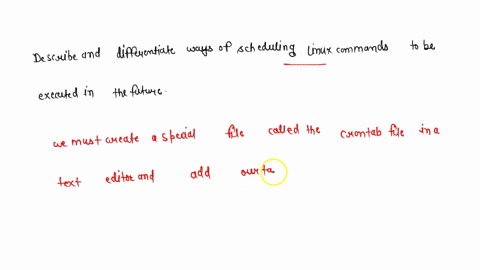 Describe and differentiate ways of scheduling linux commands to be
executed in the future.
we must create a special file called the crontab file in a
text editor and add our ta